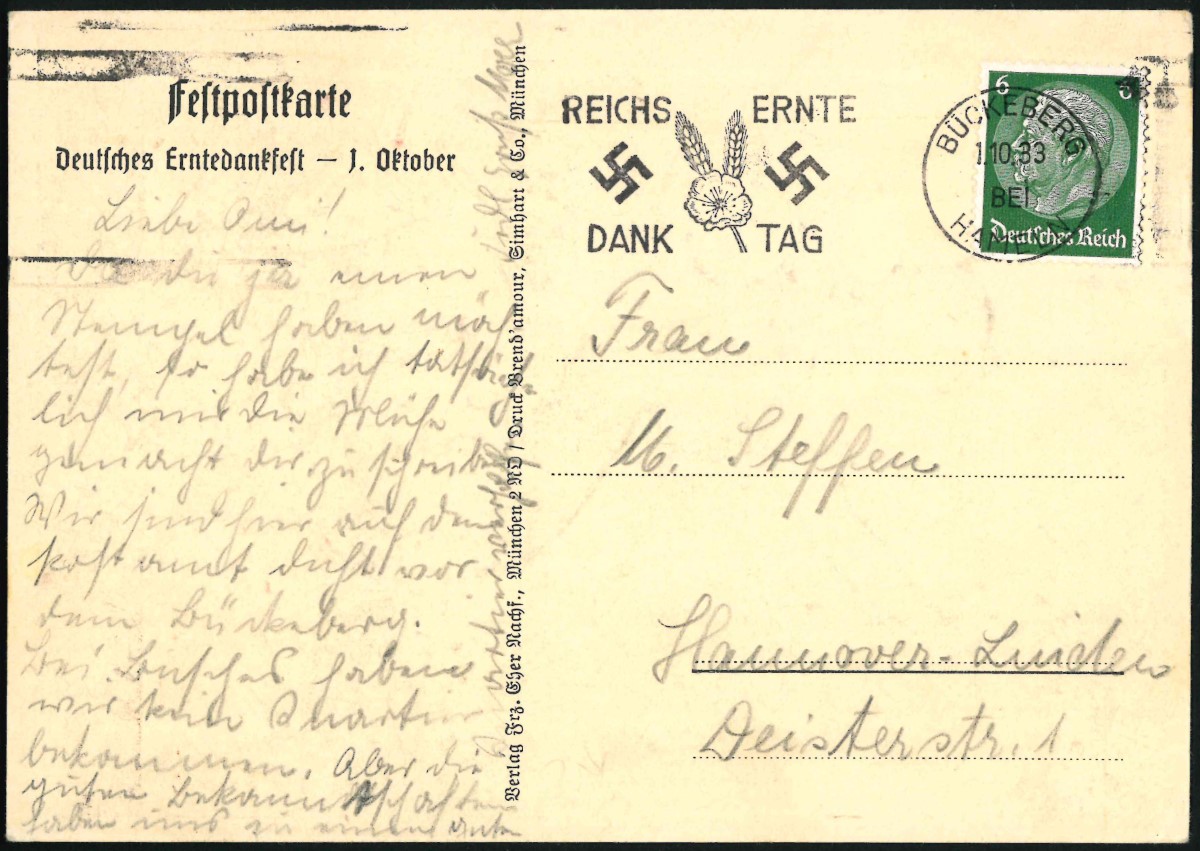 Festpostkarte
Deutsches Erntedankfest – 1. Oktober
Liebe Omi!
Da du ja einen
Stempel haben möch
test, so habe ich tatsäch
lich mir die Mühe
gemacht dir zu schreiben
Wir sind hier auf dem
Postamt dicht vor
dem Bückeberg.
Bei Busches haben
wir kein Quartier
bekommen. Aber die
guten Bekanntschaften
haben uns zu einem guten
Quartier verholfen
Verlag Frz. Eher Nachf., München 2 NO / Druck Brend'amour, Simhart & Co., München
REICHS ERNTE
DANK TAG
BÜCKEBERG
1.10.33
BEI
HAMELN
6 6
Deutsches Reich
Frau
M. Steffen
Hannover-Linden
Deisterstr. 1